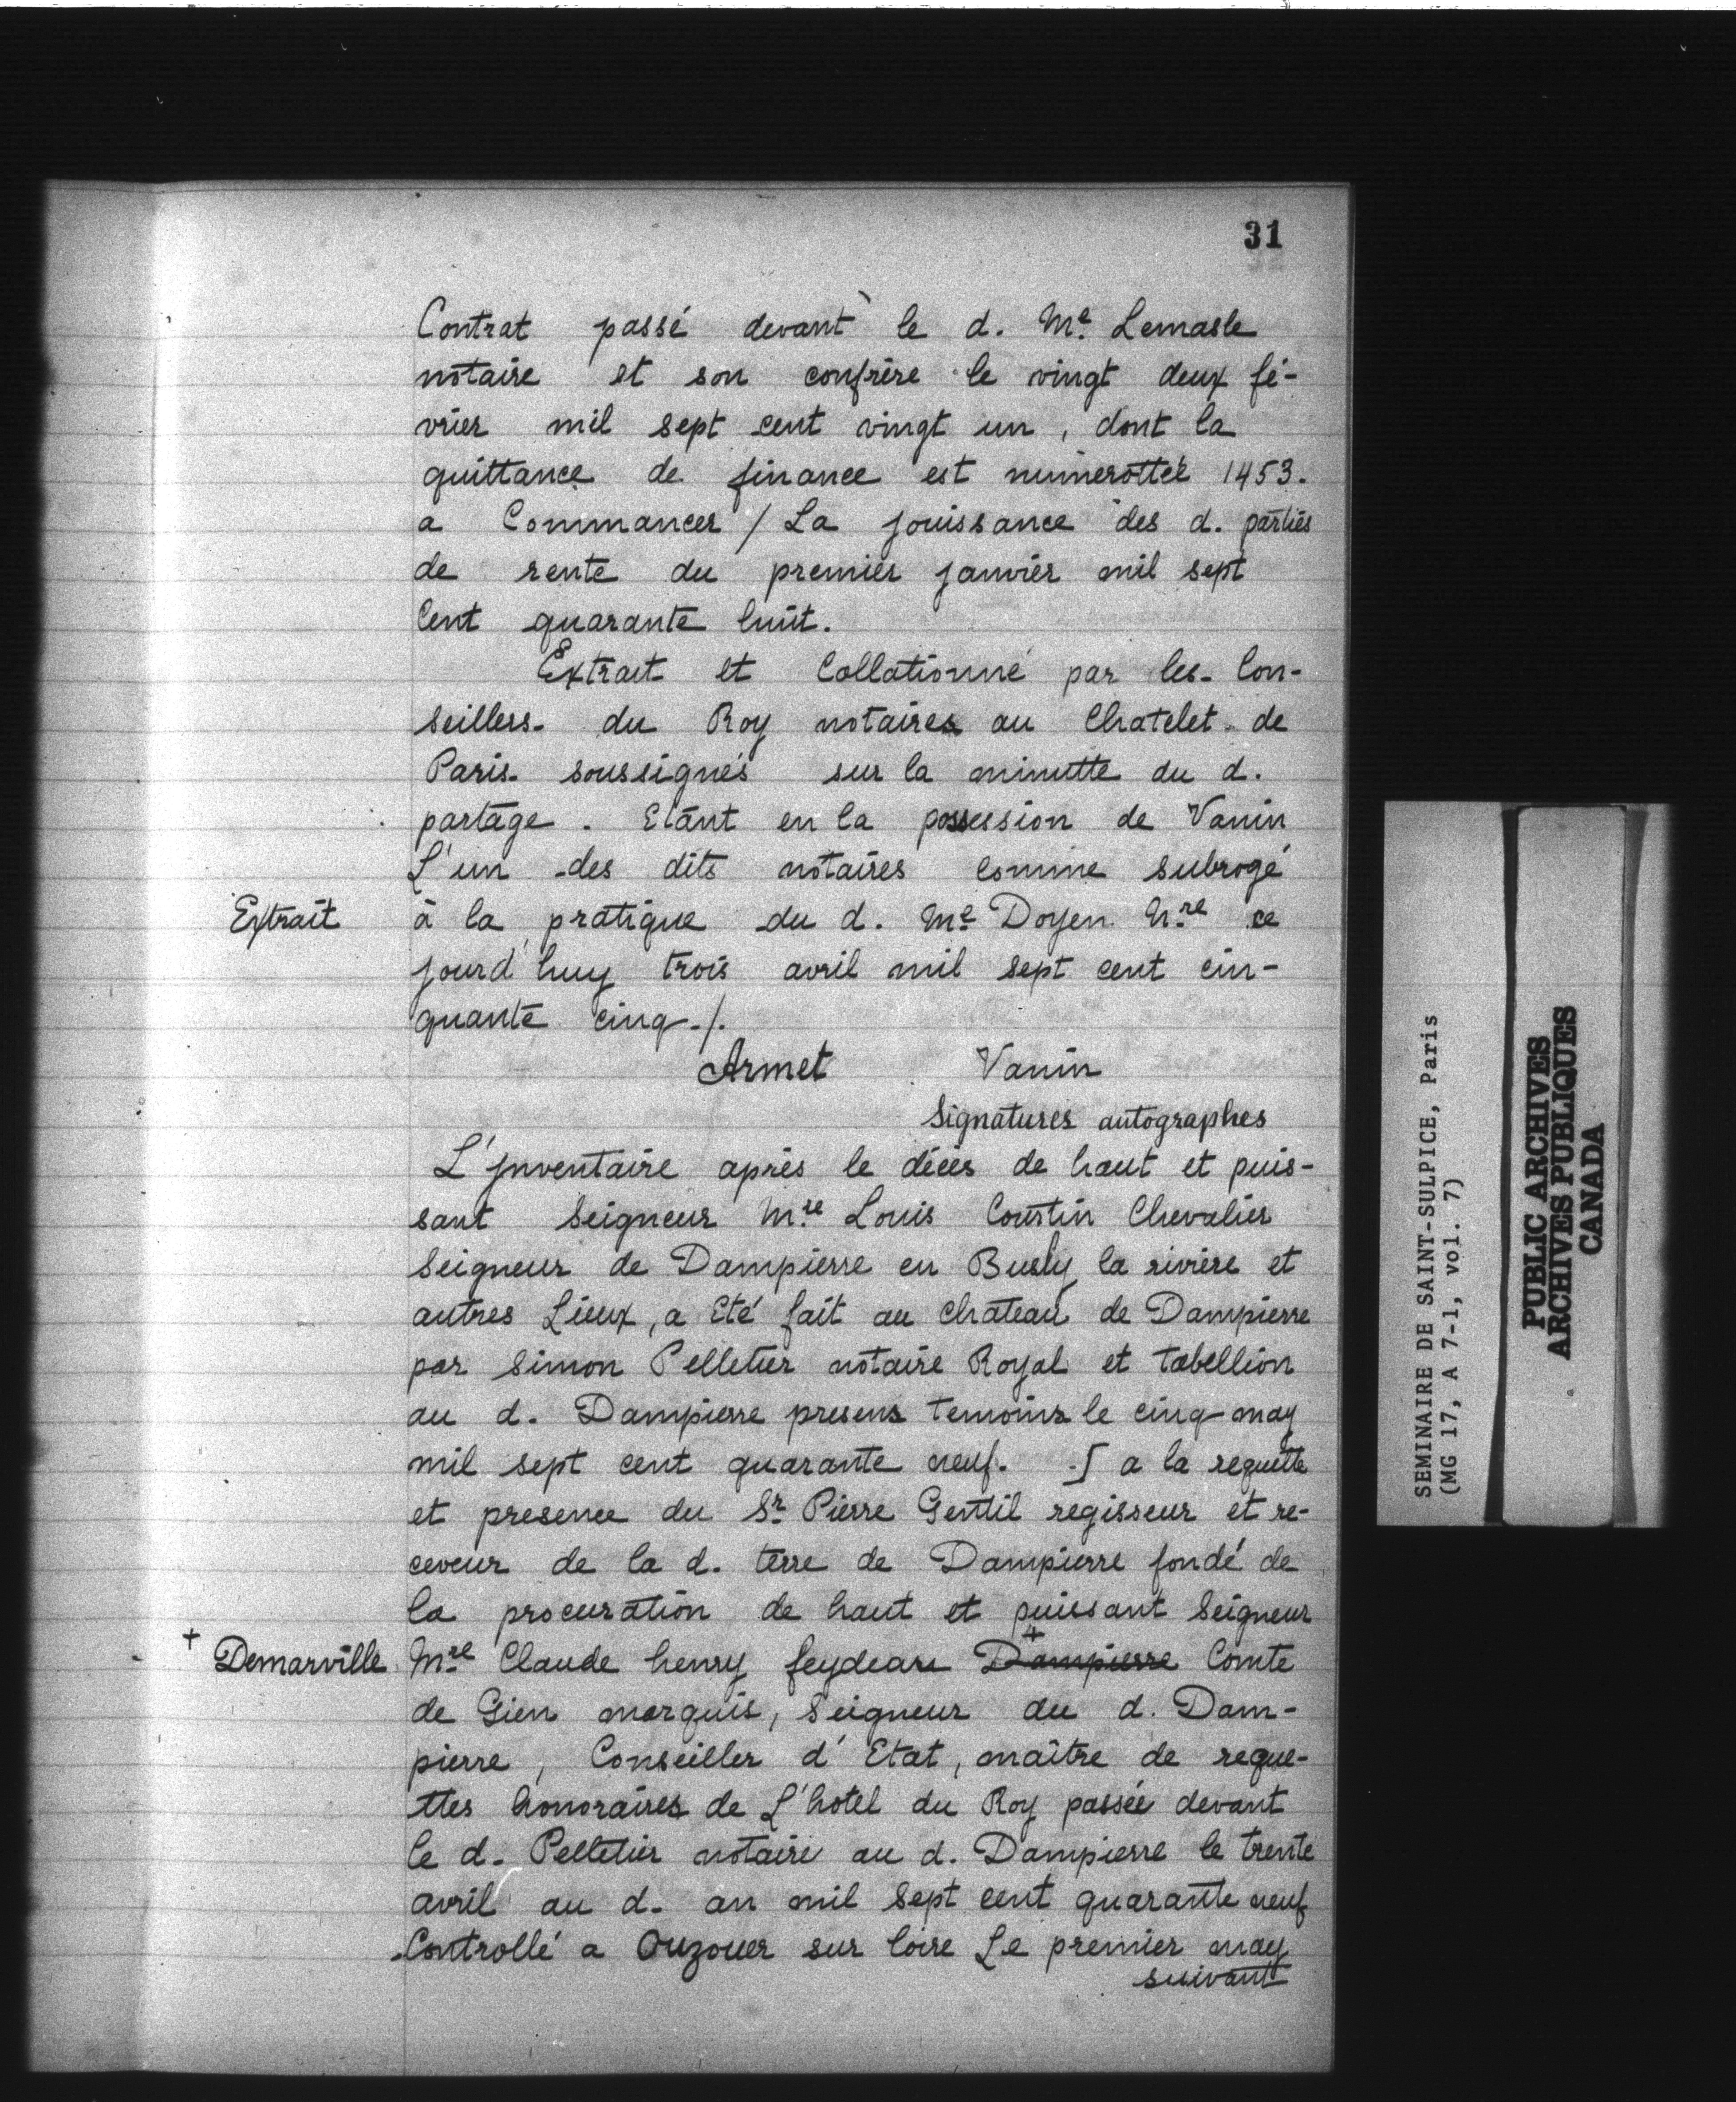 31
Contrat passé devant le d. Me. Lemasle
notaire et son confrère le vingt deux fé-
vrier mil sept cent vingt un, dont la
quittance de finance est numerottée 1453.
a Commancer / La jouissance des d. parties
de rente du premier janvier mil sept
Cent quarante huit.
Extrait et Collationné par les Con-
seillers du Roy notaires au Chatelet de
Paris soussignés sur la minutte du d.
partage. Etant en la possession de Vanin
L'un des dits notaires comme subrogé
Extrait
à la pratique du d. Me Doyen Nre ce
jourd'huy trois avril mil sept cent cin-
quante cinq./.
Armet Vanin
Signatures autographes
L'Inventaire après le décès de haut et puis-
sant Seigneur Mre Louis Courtin Chevalier
Seigneur de Dampierre en Busly la rivière et
autres Lieux, a Eté fait au chateau de Dampierre
par Simon Pelletier notaire Royal et tabellion
au d. Dampierre presens temoins le cinq may
mil sept cent quarante neuf. ∫ a la requette
et presence du Sr Pierre Gentil regisseur et re-
ceveur de la d. terre de Dampierre fondé de
la procuration de haut et puissant Seigneur
+ Demarville
Mre Claude henry feydeau + Dampierre Comte
de Gien marquis, Seigneur du d. Dam-
pierre, Conseiller d'Etat, maître de reque-
ttes honoraires de L'hotel du Roy passée devant
le d. Pelletier notaire au d. Dampierre le trente
avril au d. an mil sept cent quarante neuf
Controllé a Ouzouer sur loire Le premier may
suivant
SEMINAIRE DE SAINT-SULPICE, Paris
(MG 17, A 7-1, vol. 7)
PUBLIC ARCHIVES
ARCHIVES PUBLIQUES
CANADA